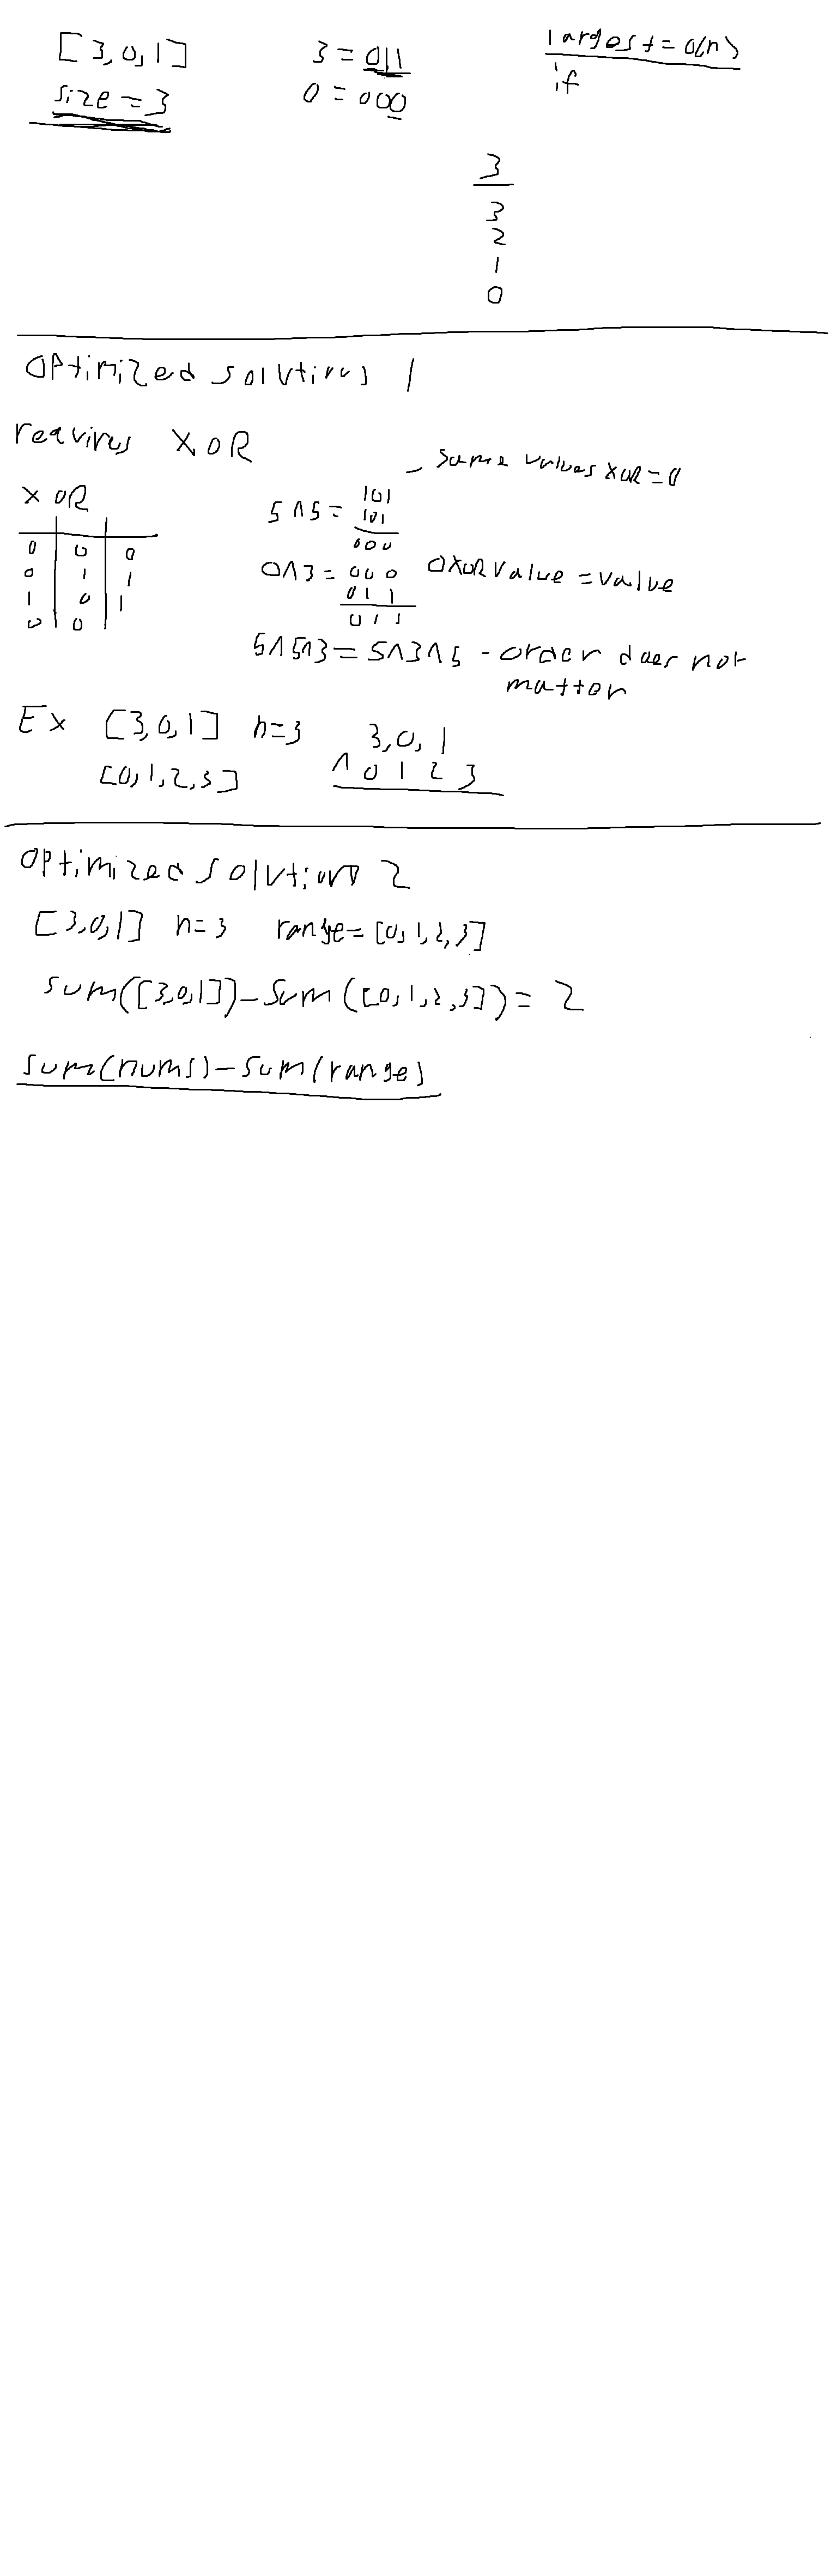 [3,0,1]
size = 3
3 = 011
0 = 000
largest = O(n)
if
3
3
2
1
0
optimized solutions 1
requires XOR
- same values XOR = 0
XOR
0 0 0
0 1 1
1 0 1
0 0
5^5 = 101
101
000
0^3 = 000
011
011
0 XOR value = value
5^5^3 = 5^3^5 - order does not
matter
Ex [3,0,1] n=3
[0,1,2,3]
3,0,1
^ 0 1 2 3
optimized solution 2
[3,0,1] n=3 range=[0,1,2,3]
sum([3,0,1])-sum([0,1,2,3])=2
sum(nums)-sum(range)